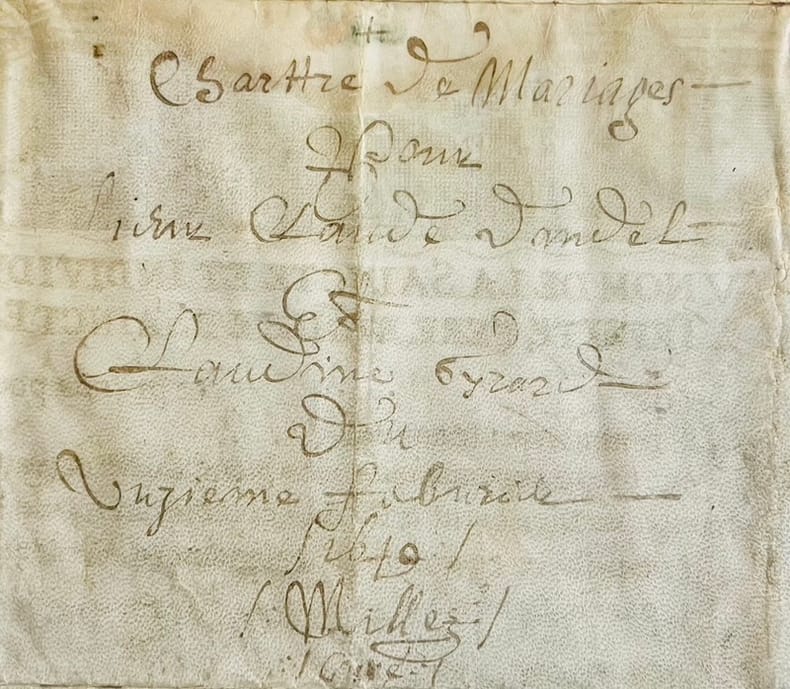 Charttre De Mariages
Pour
Sieur Claude Dondel
Et
Claudine Gyrard
Du
Unzieme febvrier
/1649/
/:Millez:/